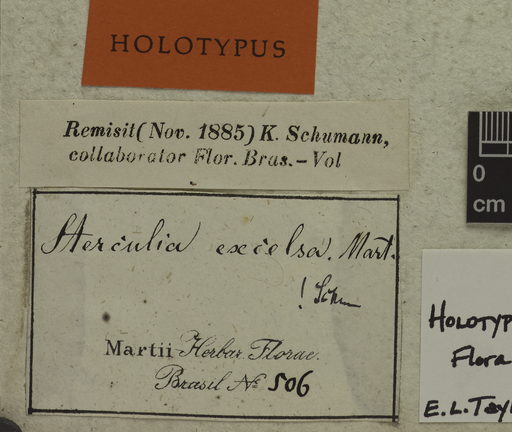 HOLOTYPUS
Remisit (Nov. 1885) K. Schumann,
collaborator Flor. Bras. – Vol
Sterculia excelsa. Mart.
! Schm
Martii Herbar. Florae.
Brasil No 506
0
cm
HOLOTYP
Flora
E.L. Tay